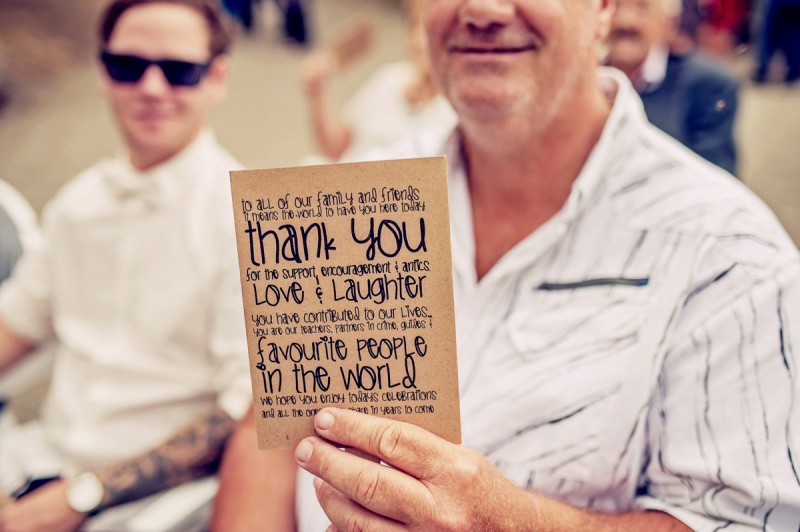 to all of our family and friends
it means the world to have you here today
thank you
for the support, encouragement & antics
Love & Laughter
you have contributed to our lives...
you are our teachers, partners in crime, guides &
favourite people
in the world
we hope you enjoy todays celebrations
and all the ones share in years to come